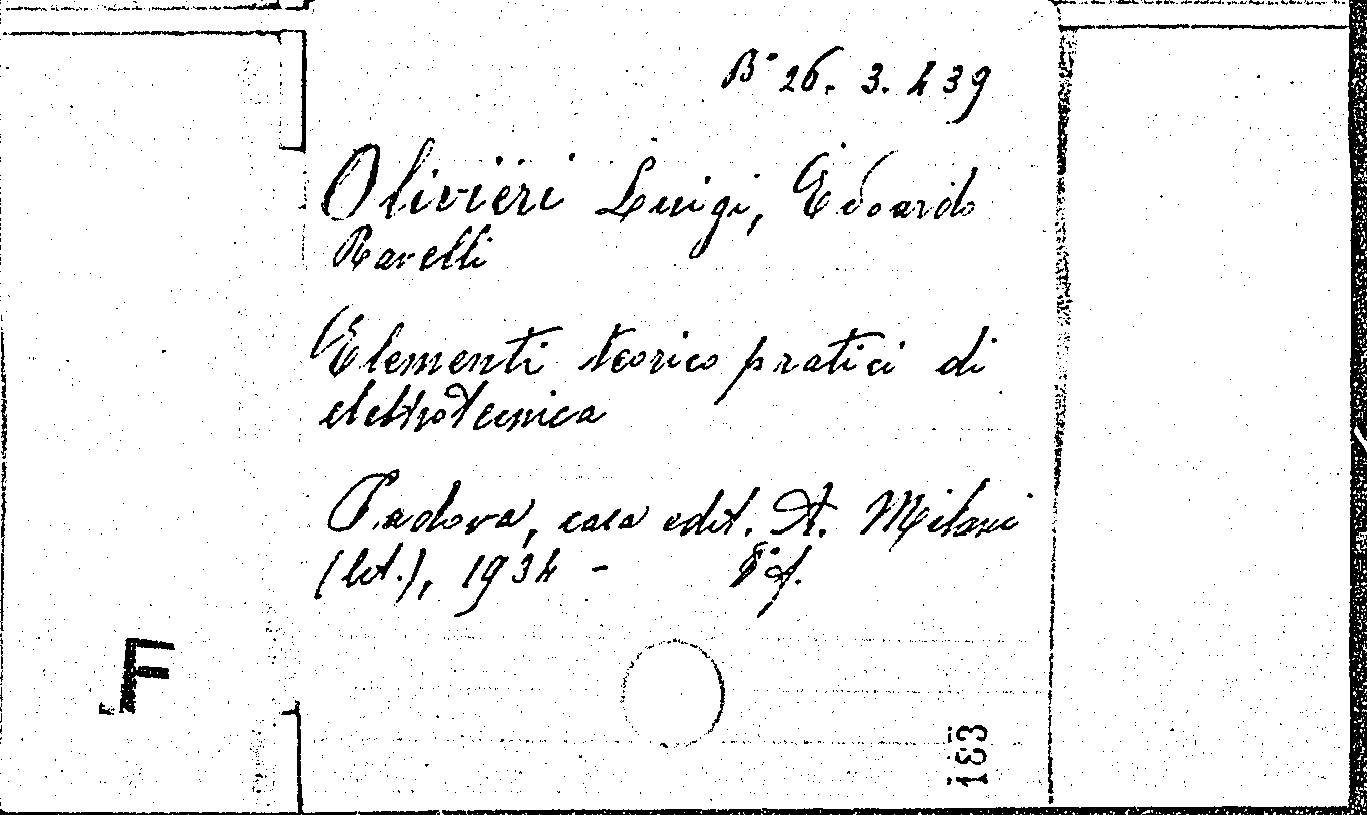 B° 26. 3. 439
Olivieri Luigi, Edoardo
Ravelli
Elementi teorico pratici di
elettrotecnica
Padova, casa edit. A. Milani
(lit.), 1934 - 8° f.
F
183